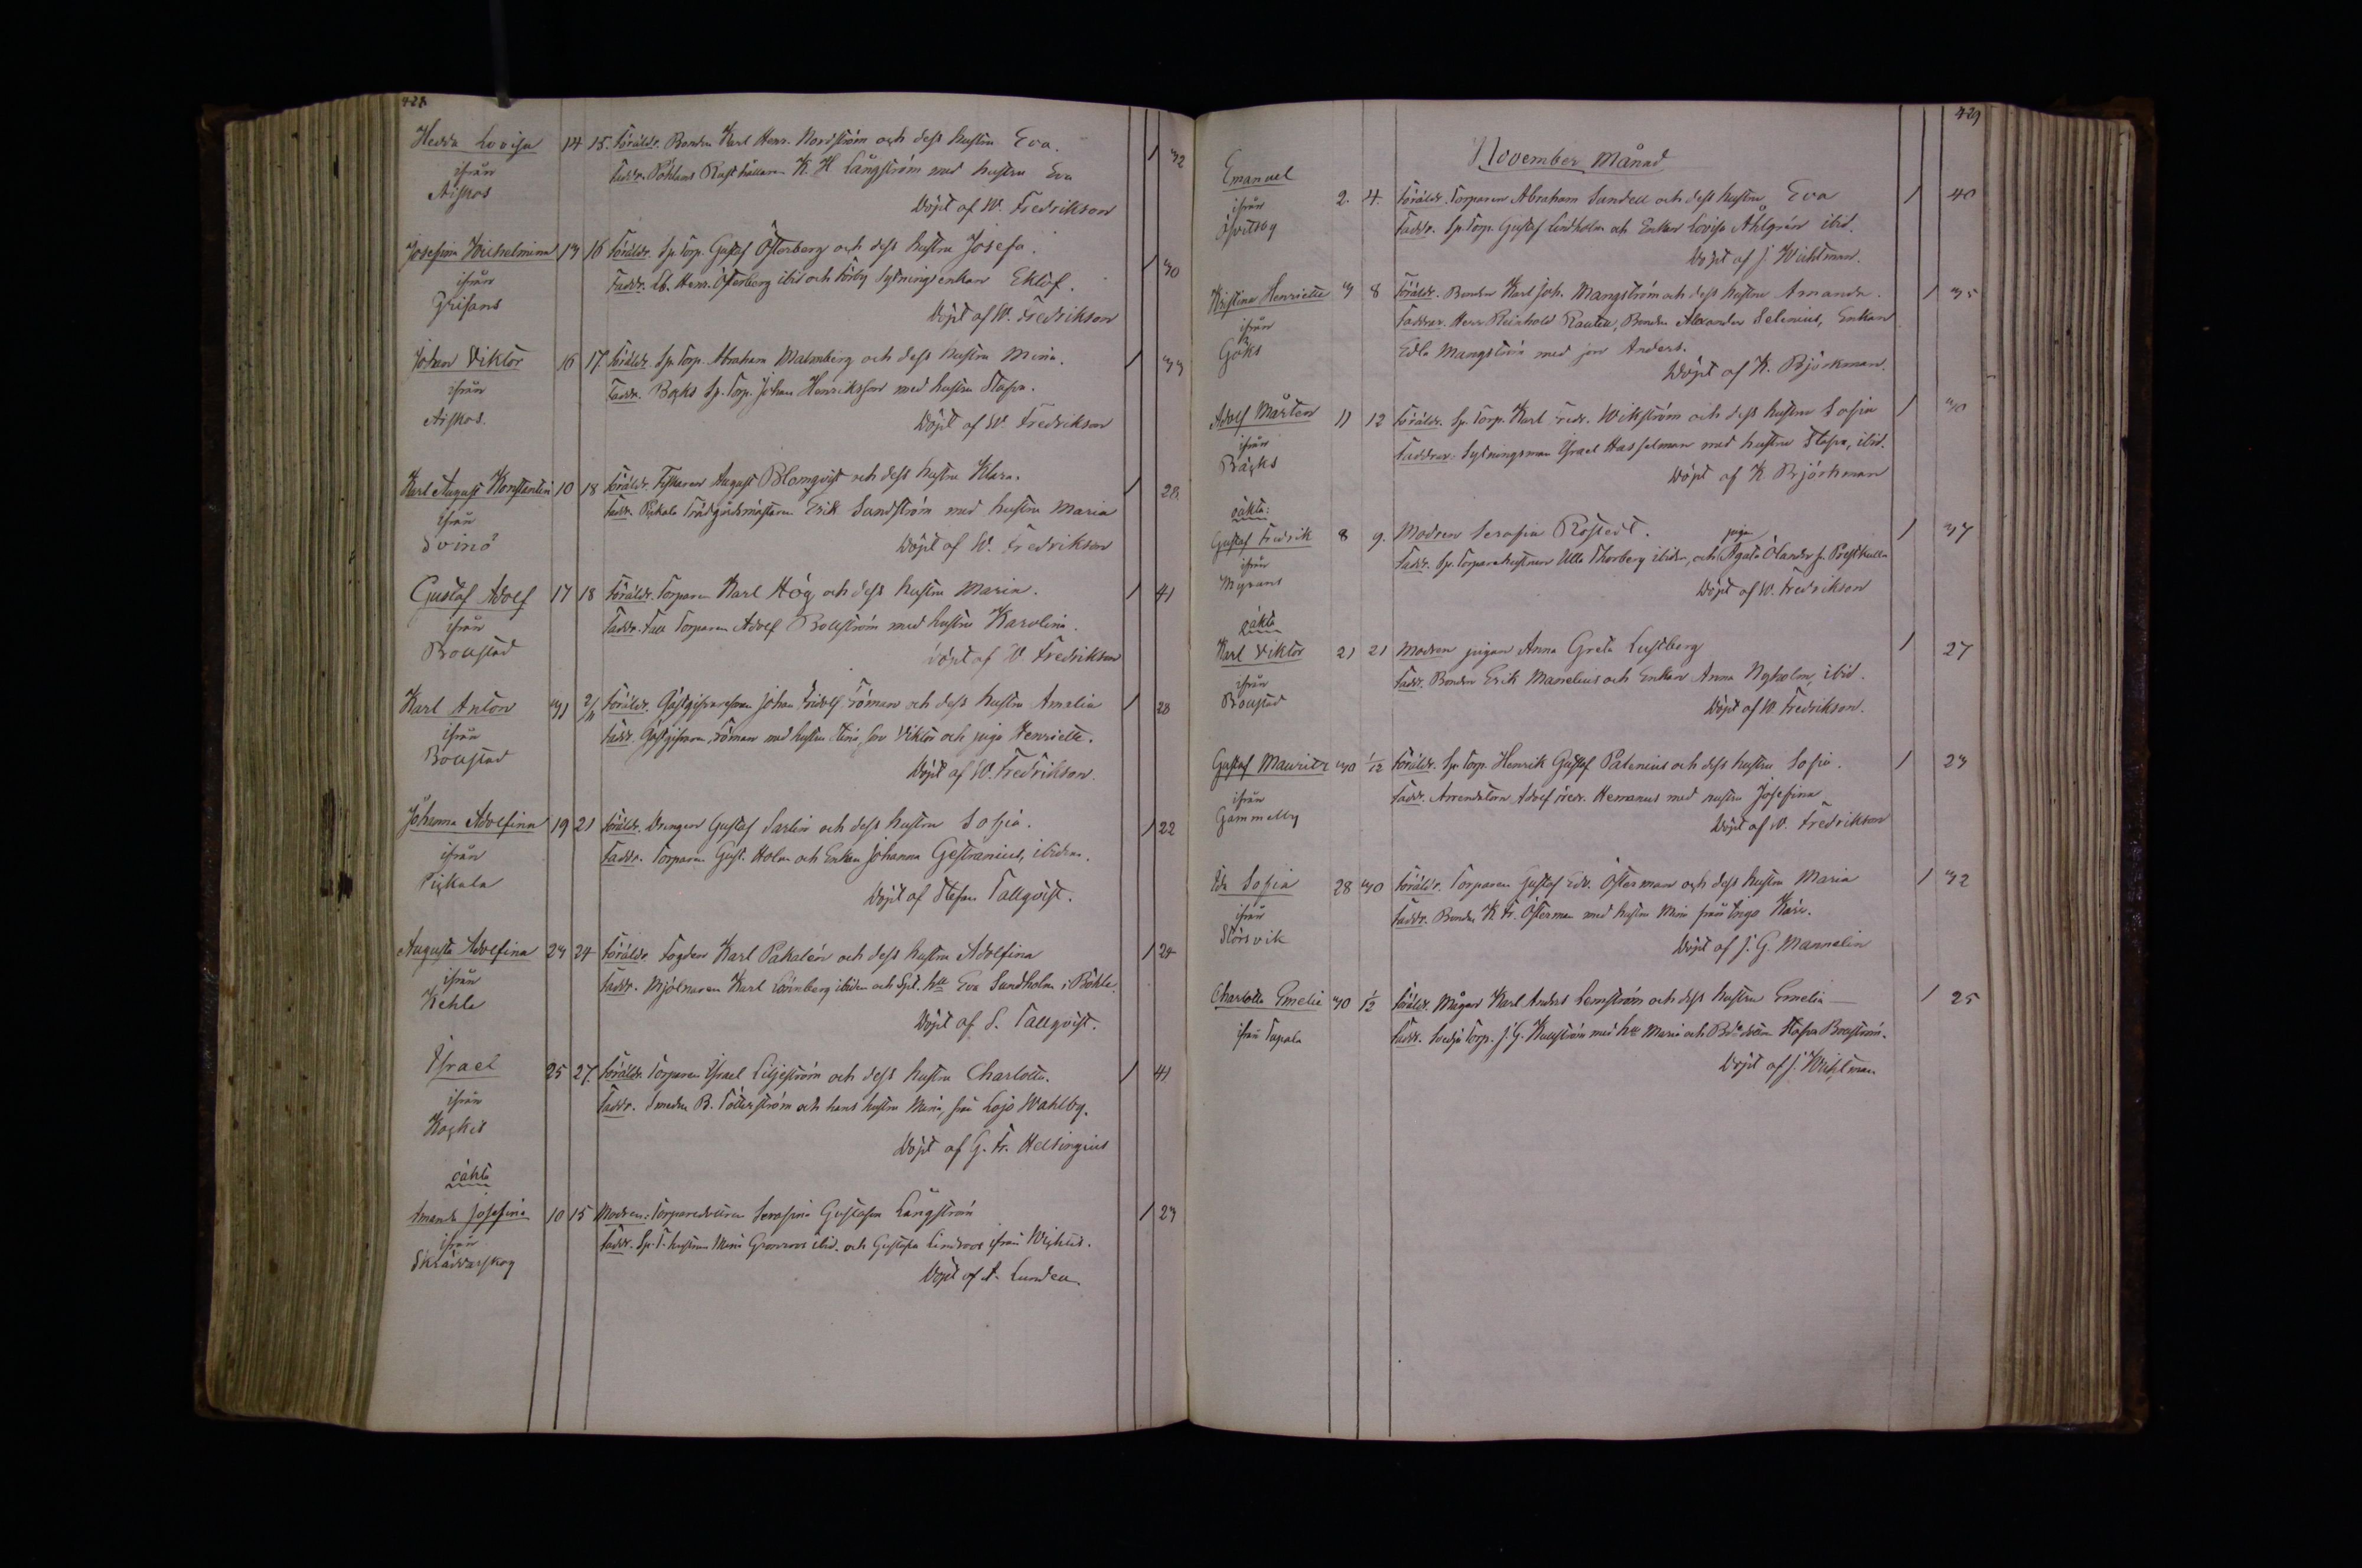 428.
Hedda Lovisa 14 15. Föräldr. Bonden Karl Henr. Nordström och dess hustru Eva. 1 32
ifrån Faddr. Pöhlans Rusthållaren K. H Långström med hustru Eva
Aiskos Döpt af W. Fredrikson
Josefina Wilhelmina 13 16 Föräldr. Sp. Torp. Gustaf Österberg och dess hustru Josefa. 1 30
ifrån Faddr. Henr. Österberg ibid och Törby Sytningsenkan Eklöf.
Grisans Döpt af W. Fredrikson
Johan Viktor 16 17. Föräldr. Sp. Torp. Abraham Malmberg och dess hustru Mina. 1 33
ifrån Faddr. Backs Sp. Torp. Johan Henriksson med hustru Stafva.
Aiskos. Döpt af W. Fredrikson
Karl August Konstantin 10 18 Föräldr. Fiskaren August Blomqvist och dess hustru Klara. 1 28.
ifrån Faddr. Pickala Trädgårdsmästaren Erik Sandström med hustru Maria
Svinö Döpt af W. Fredrikson
Gustaf Adolf 17 18 Föräldr. Torparen Karl Hög och dess hustru Maria. 1 41
ifrån Faddr. Torparen Adolf Bollström med hustru Karolina.
Bollstad Döpt af W. Fredrikson
Karl Anton 31 2/11 Föräldr. Gästgifvaresonen Johan Fridolf Töman och dess hustru Amelia 1 28
ifrån Faddr. Gästgifvaren Töman med hustru Stina, son Viktor och piga Henriette.
Bollstad Döpt af W. Fredrikson.
Johanna Adolfina 19 21 Föräldr. Drengen Gustaf Sarlin och dess hustru Sofia. 1 22
ifrån Faddr. Torparen Gust. Holm och Enkan Johanna Gestranius, ibidem.
Pickala Döpt af Stefan Tallqvist.
Augusta Adolfina 23 24 Föräldr. Fogden Karl Pakalén och dess hustru Adolfina 1 24
ifrån Faddr. Mjölnaren Karl Lönnberg ibidem och Spt. hu Eva Sundholm i Böhle.
Kehla Döpt af S. Tallqvist.
Israel 25 27. Föräldr. Torparen Israel Liljeström och dess hustru Charlotta. 1 41
ifrån Faddr. Smeden B. Tötterström och hans hustru Mina, från Lojo Wahlby.
Kockis Döpt af G. Fr. Helsingius
oäkta
Amanda Josefina 10 15 Modren: Torparedottren Serafina Gustafva Långström 1 23
ifrån Faddr. Sp. T. hustrun Mina Grönroos ibid. och Gustafva Lindroos ifrån Wickus.
Skräddarskog Döpt af A. Lundell
429
November Månad
Emanuel 2. 4. Föräldr. Torparen Abraham Sundell och dess hustru Eva 1 40
ifrån Faddr. Sp. Torp. Gustaf Lindholm och Enkan Lovisa Ahlgrén ibid.
Döpt af J. Wichtman.
Kristina Henriette 3 8 Föräldr. Bonden Karl Joh. Mangström och dess hustru Amanda. 1 35
ifrån Faddrar. Herr Reinhold Rautell, Bonden Alexander Selenius, Enkan
Göks Edla Mangström med son Anders.
Döpt af K. Björkman.
Adolf Mårten 11 12 Föräldr. Sp. Torp. Karl Fredr. Wikström och dess hustru Sofia 1 30
ifrån Faddrar. Sytningsman Israel Hasselman med hustru Stafva, ibid.
Bäcks Döpt af K Björkman
oäkta:
Gustaf Fredrik 8 9. Modren Serafia Rostedt. 1 37
ifrån Faddr. Sp. Torparehustrun Ulla Thorberg ibidem, och pigan Agata Ölander fr. Prestkulla
Myrans Döpt af W. Fredrikson
oäkta
Karl Viktor 21 21 Modren pigan Anna Greta Lustberg 1 27
ifrån Faddr. Bonden Erik Manelius och Enkan Anna Nyholm, ibid.
Bollstad Döpt af W. Fredrikson.
Gustaf Mauritz 30 1/12 Föräldr. Sp. Torp. Henrik Gustaf Palenius och dess hustru Sofia. 1 23
ifrån Faddr. Arrendatorn Adolf Fredr. Hemanus med hustru Josefina
Gammelby Döpt af W. Fredrikson
Ida Sofia 28 30 Föräldr. Torparen Gustaf Edv. Österman och dess hustru Maria 1 32
ifrån Faddr. Bonden K. Fr. Österman med hustru Mina från Ingo Kärr.
Störsvik Döpt af J. G. Mannelin
Charlotta Emelie 30 1/12 Föräldr. Mågen Karl Anders Lemström och dess hustru Emelia 1 25
ifrån Tupala Faddr. Svedje Torp. J. G. Kullström med hu Maria och Stafva Broström.
Döpt af J. Wichtman